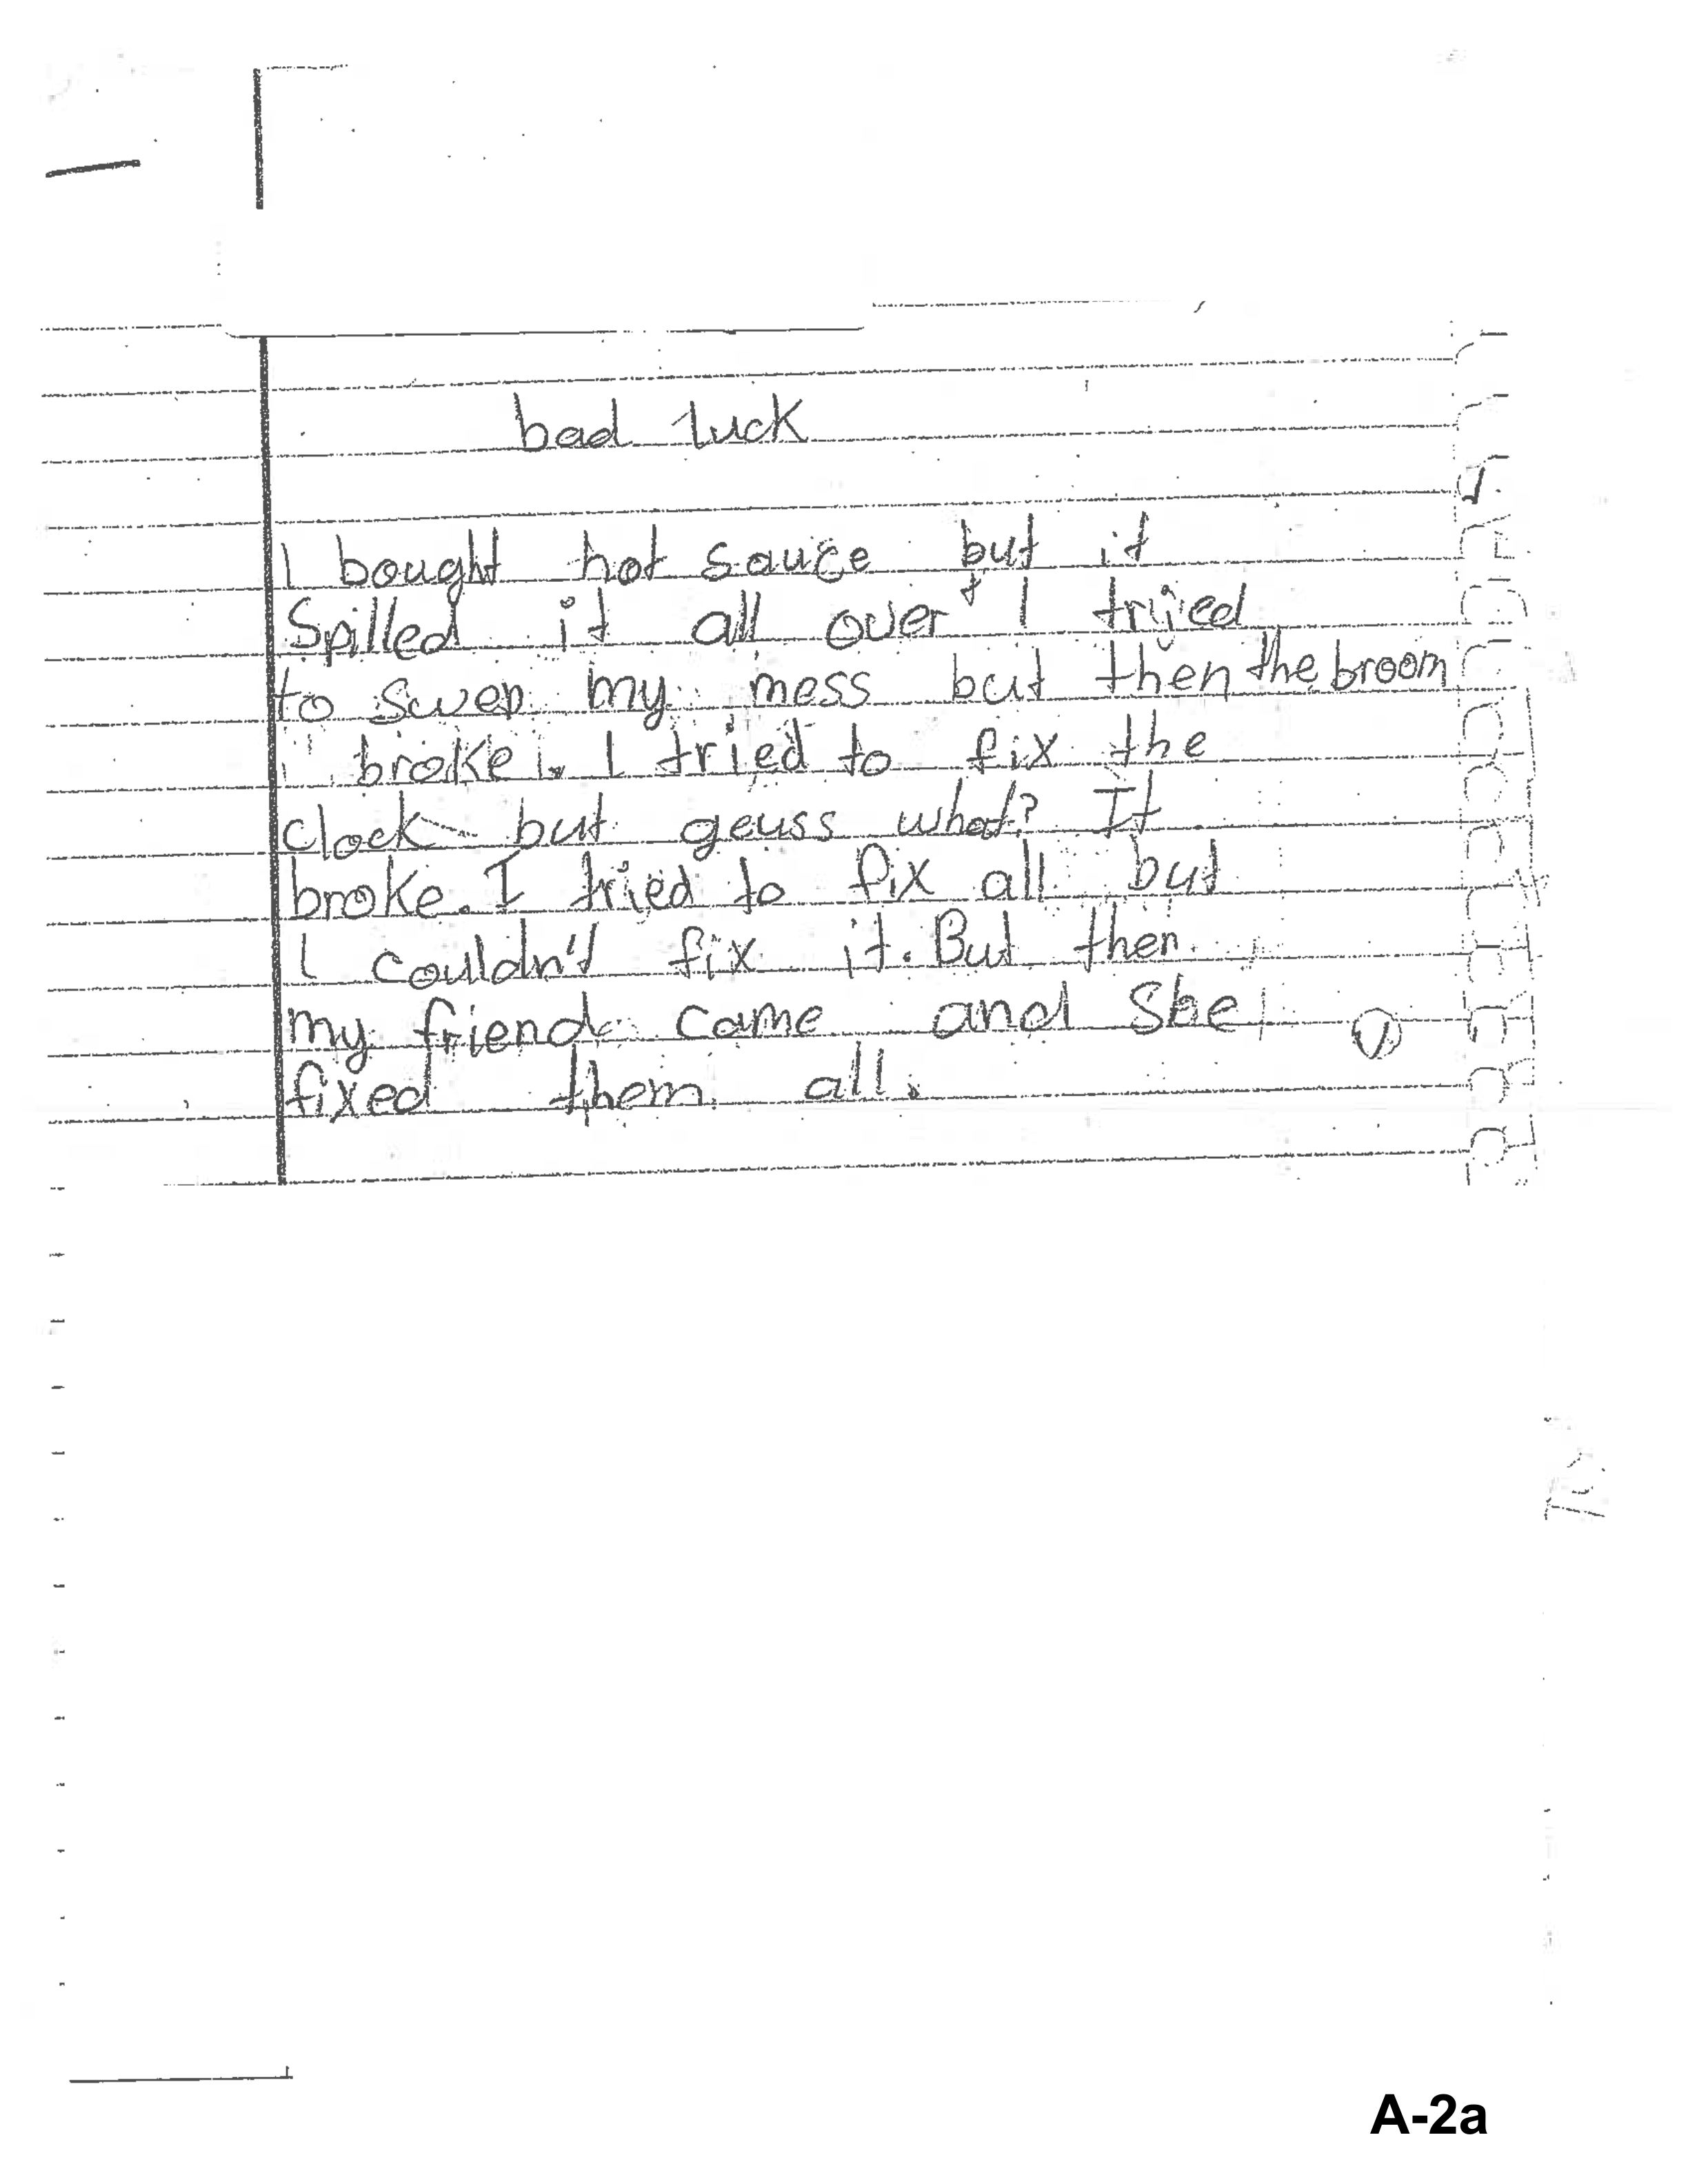 bad luck
I bought hot sauce but it
Spilled it all over I tryied
to swep my mess but then the broom
broke. I tried to fix the
clock but geuss what? It
broke. I tried to fix all but
I couldn't fix it. But then
my friend came and She
fixed them all.
A-2a